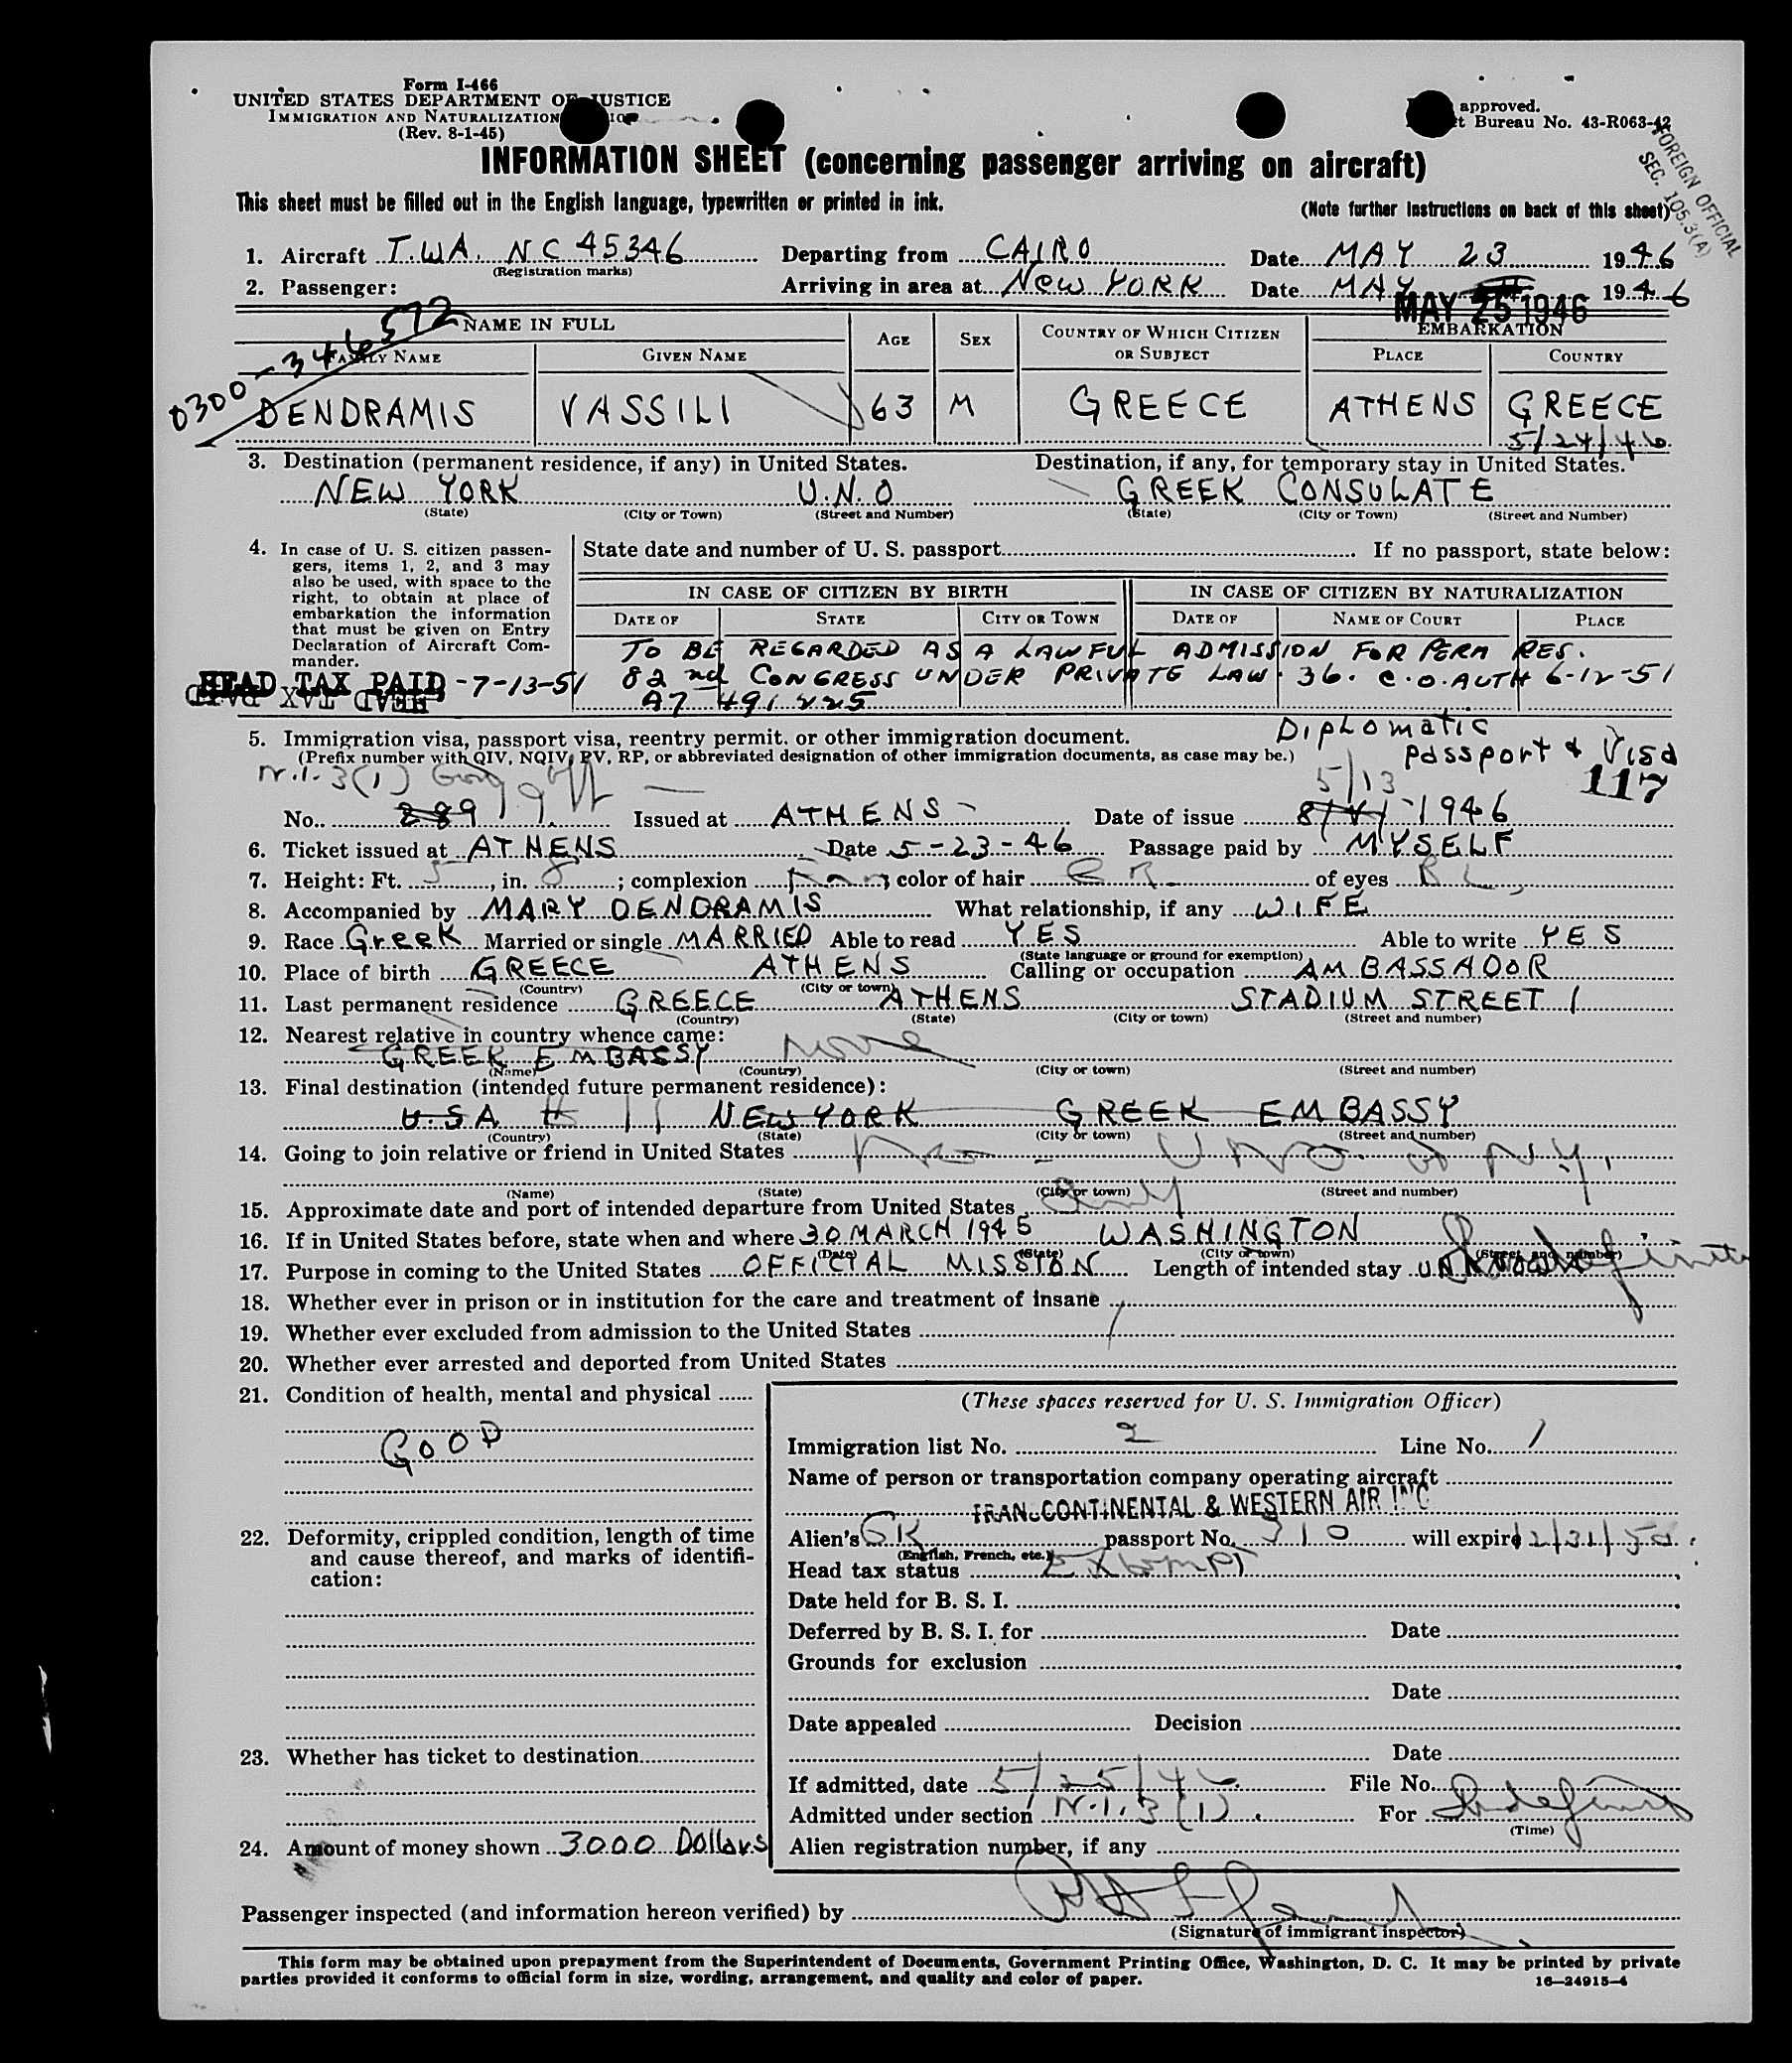 Form I-466
UNITED STATES DEPARTMENT OF JUSTICE
IMMIGRATION AND NATURALIZATION
(Rev. 8-1-45)
approved.
Bureau No. 43-R063-42
FOREIGN OFFICIAL
SEC. 105.3(A)
INFORMATION SHEET (concerning passenger arriving on aircraft)
This sheet must be filled out in the English language, typewritten or printed in ink.
(Note further instructions on back of this sheet)
1. Aircraft T.WA. NC 45346 Departing from CAIRO Date MAY 23 1946
(Registration marks)
2. Passenger: Arriving in area at NEW YORK Date MAY 1946
MAY 25 1946
0300-346572
NAME IN FULL AGE SEX COUNTRY OF WHICH CITIZEN OR SUBJECT EMBARKATION
FAMILY NAME GIVEN NAME PLACE COUNTRY
DENDRAMIS VASSILI 63 M GREECE ATHENS GREECE
5/24/46
3. Destination (permanent residence, if any) in United States. Destination, if any, for temporary stay in United States.
NEW YORK U.N.O GREEK CONSULATE
(State) (City or Town) (Street and Number) (State) (City or Town) (Street and Number)
4. In case of U. S. citizen passen-
gers, items 1, 2, and 3 may
also be used, with space to the
right, to obtain at place of
embarkation the information
that must be given on Entry
Declaration of Aircraft Com-
mander.
State date and number of U. S. passport If no passport, state below:
IN CASE OF CITIZEN BY BIRTH IN CASE OF CITIZEN BY NATURALIZATION
DATE OF STATE CITY OR TOWN DATE OF NAME OF COURT PLACE
TO BE REGARDED AS A LAWFUL ADMISSION FOR PERM RES.
82nd CONGRESS UNDER PRIVATE LAW. 36. C.O. AUTH 6-12-51
A7 491 225
HEAD TAX PAID -7-13-51
HEAD TAX PAID
5. Immigration visa, passport visa, reentry permit, or other immigration document. Diplomatic
(Prefix number with QIV, NQIV, PV, RP, or abbreviated designation of other immigration documents, as case may be.) passport & Visa
5/13 117
No. 889 Issued at ATHENS Date of issue 1946
6. Ticket issued at ATHENS Date 5-23-46 Passage paid by MYSELF
7. Height: Ft. 5, in. 8; complexion color of hair GR of eyes BL
8. Accompanied by MARY DENDRAMIS What relationship, if any WIFE
9. Race Greek Married or single MARRIED Able to read YES Able to write YES
(State language or ground for exemption)
10. Place of birth GREECE ATHENS Calling or occupation AMBASSADOR
(Country) (City or town)
11. Last permanent residence GREECE ATHENS STADIUM STREET 1
(Country) (State) (City or town) (Street and number)
12. Nearest relative in country whence came:
GREEK EMBASSY None
(Name) (Country) (City or town) (Street and number)
13. Final destination (intended future permanent residence):
U.S.A NEW YORK GREEK EMBASSY
(Country) (State) (City or town) (Street and number)
14. Going to join relative or friend in United States No - UNO. N.Y.
(Name) (State) (City or town) (Street and number)
15. Approximate date and port of intended departure from United States
16. If in United States before, state when and where 30 MARCH 1945 WASHINGTON
(Date) (State) (City or town) (Street and number)
17. Purpose in coming to the United States OFFICIAL MISSION Length of intended stay Indefinite
18. Whether ever in prison or in institution for the care and treatment of insane
19. Whether ever excluded from admission to the United States
20. Whether ever arrested and deported from United States
21. Condition of health, mental and physical
GOOD
22. Deformity, crippled condition, length of time
and cause thereof, and marks of identifi-
cation:
23. Whether has ticket to destination
24. Amount of money shown 3000 Dollars
(These spaces reserved for U. S. Immigration Officer)
Immigration list No. 2 Line No. 1
Name of person or transportation company operating aircraft
TRANSCONTINENTAL & WESTERN AIR INC
Alien's GK passport No. 310 will expire 12/31/50.
(English, French, etc.)
Head tax status Exempt
Date held for B. S. I.
Deferred by B. S. I. for Date
Grounds for exclusion
Date
Date appealed Decision
Date
If admitted, date 5/25/46. File No.
Admitted under section N.1.3(1). For Indefinite
(Time)
Alien registration number, if any
Passenger inspected (and information hereon verified) by
(Signature of immigrant inspector)
This form may be obtained upon prepayment from the Superintendent of Documents, Government Printing Office, Washington, D. C. It may be printed by private
parties provided it conforms to official form in size, wording, arrangement, and quality and color of paper. 16—24915-4